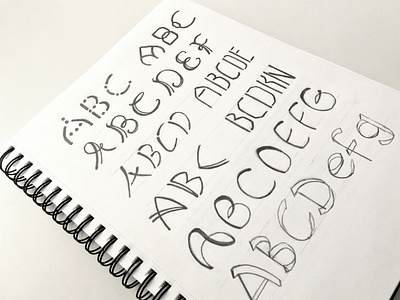 ABC ABC
ABCDEF
ABCD ABCDE
ABC BCDKN
ABCDEFG
ABCDefg